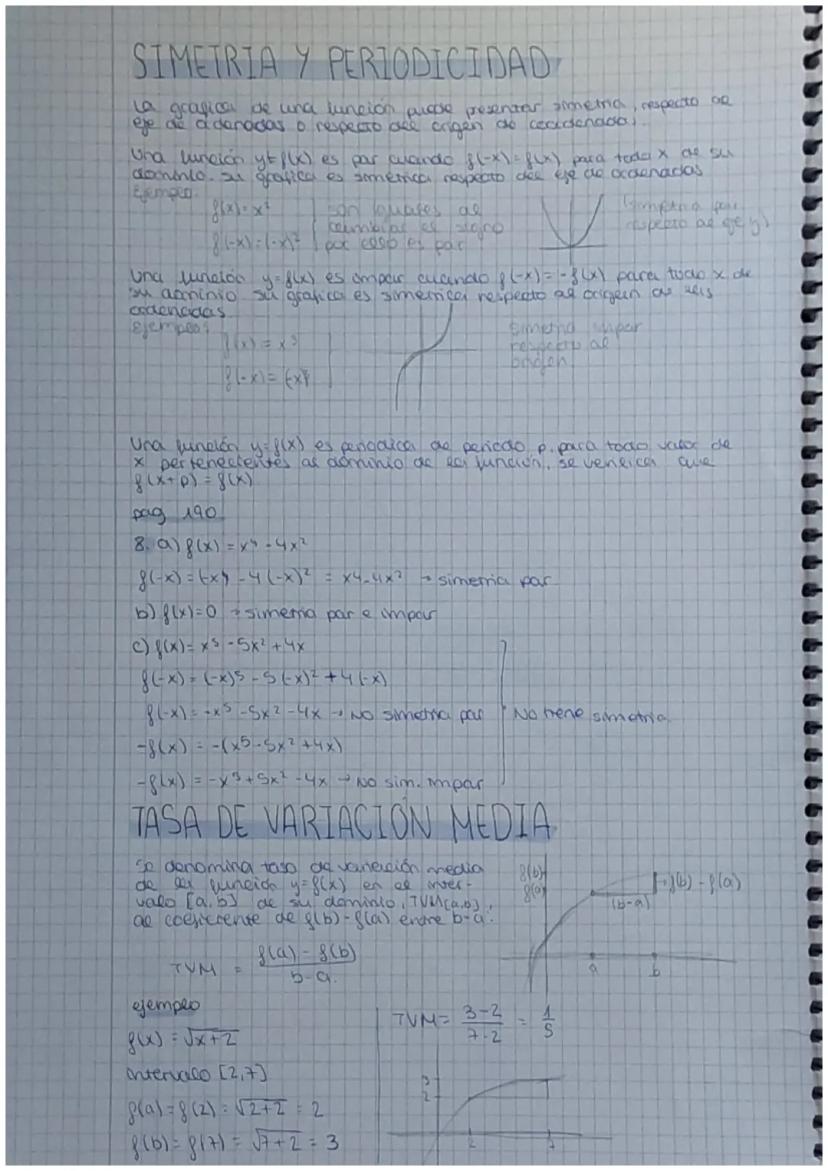 SIMETRIA Y PERIODICIDAD
La grafica de una función puede presentar simetria, respecto de
eje de ordenadas o respecto del origen de coordenadas.
Una función y=f(x) es par cuando f(-x)=f(x) para todo x de su
dominio. su grafica es simetrica respecto del eje de ordenadas
Ejemplo:
f(x)=x²
f(-x)=(-x)²
son iguales al
cambiar el signo
por eso es par
(simetria par
respecto al eje y)
Una función y=f(x) es impar cuando f(-x)=-f(x) para todo x de
su dominio su grafica es simetrica respecto al origen de
cordenadas
Ejemplo:
f(x)=x³
f(-x)=(-x)³
Simetria impar
respecto al
origen
Una función y=f(x) es periodica de periodo p, para todo valor de
x pertenecientes al dominio de la función, se verifica que
f(x+p)=f(x)
pag 190
8. a) f(x)=x⁴-4x²
f(-x)=(-x)⁴-4(-x)² = x4-4x² → simetria par
b) f(x)=0 → simetria par e impar
c) f(x)=x⁵-5x²+4x
f(-x)=(-x)5-5(-x)²+4(-x)
f(-x)=-x⁵-5x²-4x → No simetria par
No tiene simetria
-f(x)=-(x⁵-5x²+4x)
-f(x)=-x⁵+5x²-4x → No sim. impar
TASA DE VARIACIÓN MEDIA
Se denomina tasa de variación media
de la función y=f(x) en el inter-
valo [a,b] de su dominio, TVM[a,b],
al coeficente de f(b)-f(a) entre b-a.
f(b)
f(a)
f(b)-f(a)
(b-a)
a b
TVM = f(a)-f(b) / b-a
ejemplo
f(x)=√x+2
TVM= 3-2 / 7-2 = 1/5
intervalo [2,7]
f(a)=f(2)=√2+2=2
f(b)=f(7)=√7+2=3
3
2
2